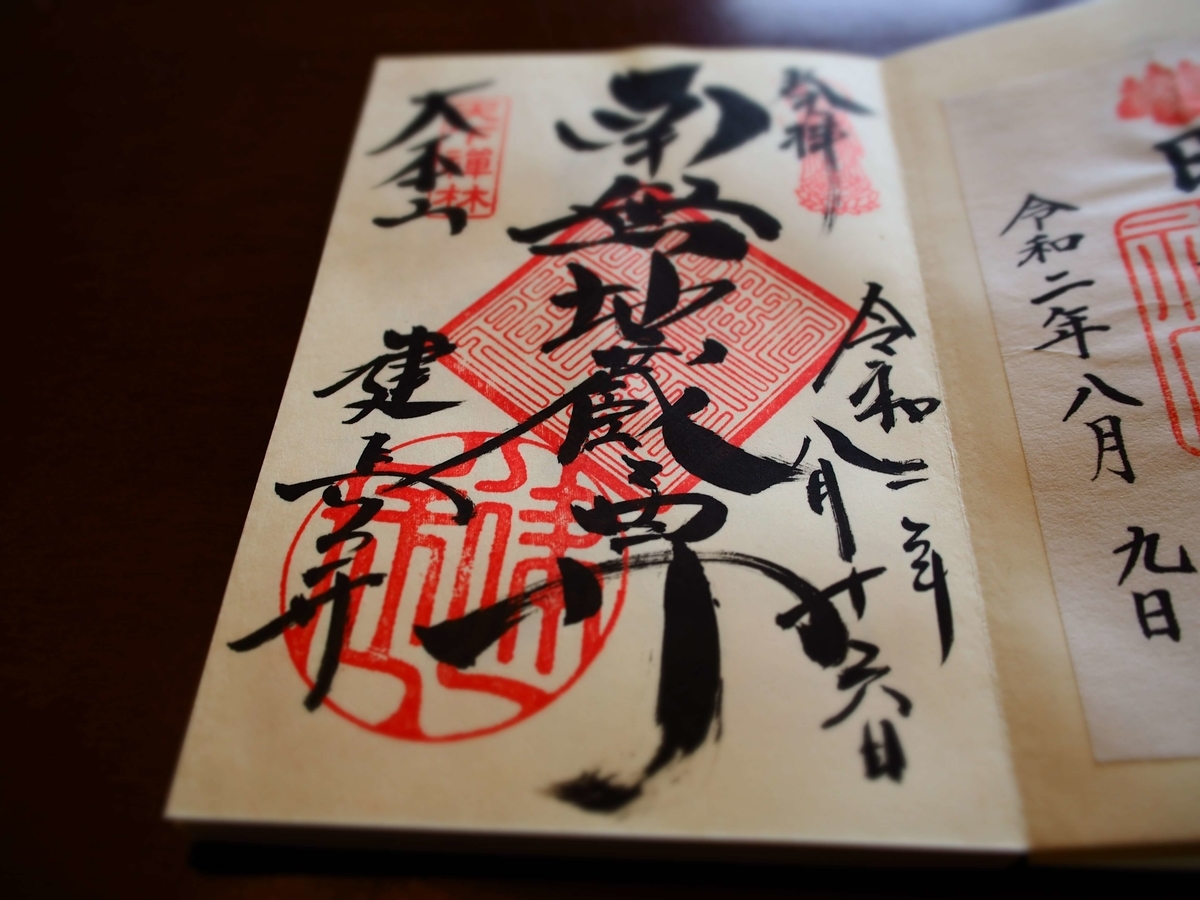 令和二年八月九日
奉拝
令和二年
八月廿六日
南無地蔵尊
大本山
建長寺
天下禅林